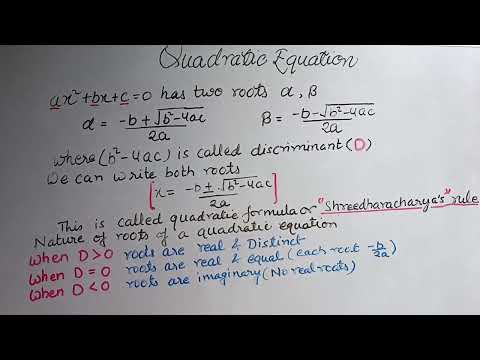 Quadratic Equation
ax²+bx+c=0 has two roots α, β
α = (-b+√(b²-4ac))/2a    β = (-b-√(b²-4ac))/2a
where (b²-4ac) is called discriminant (D)
We can write both roots
[x = (-b±√(b²-4ac))/2a]
This is called quadratic formula or "Shreedharacharya's" rule
Nature of roots of a quadratic equation
when D>0 roots are real & Distinct
when D=0 roots are real & equal (each root -b/2a)
when D<0 roots are imaginary (No real roots)